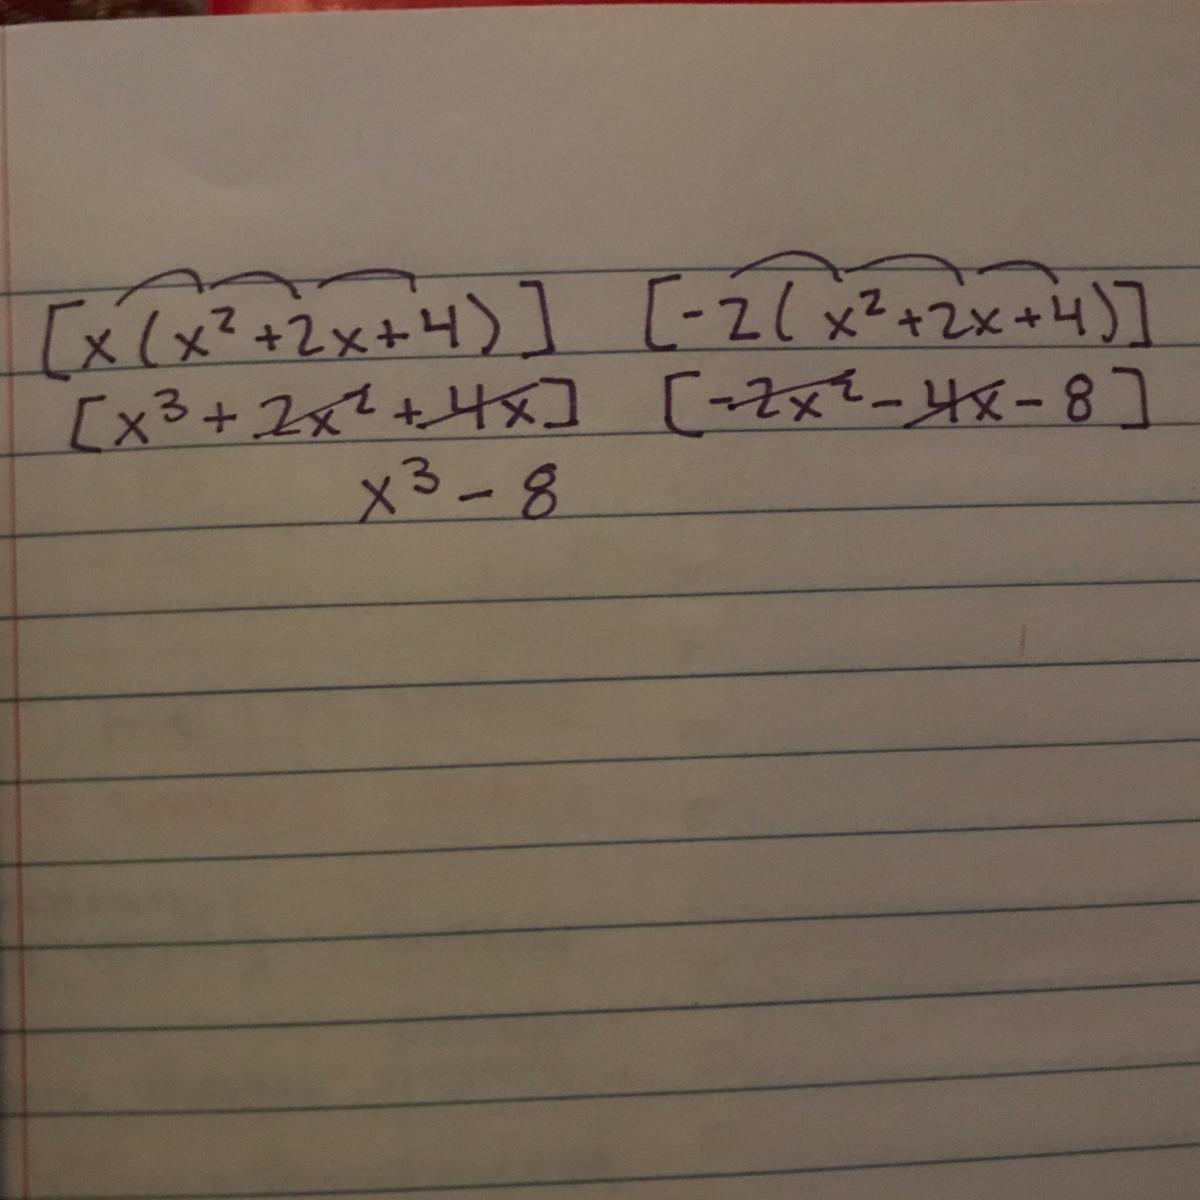 [x(x²+2x+4)] [-2(x²+2x+4)]
[x³+2x²+4x] [-2x²-4x-8]
x³-8